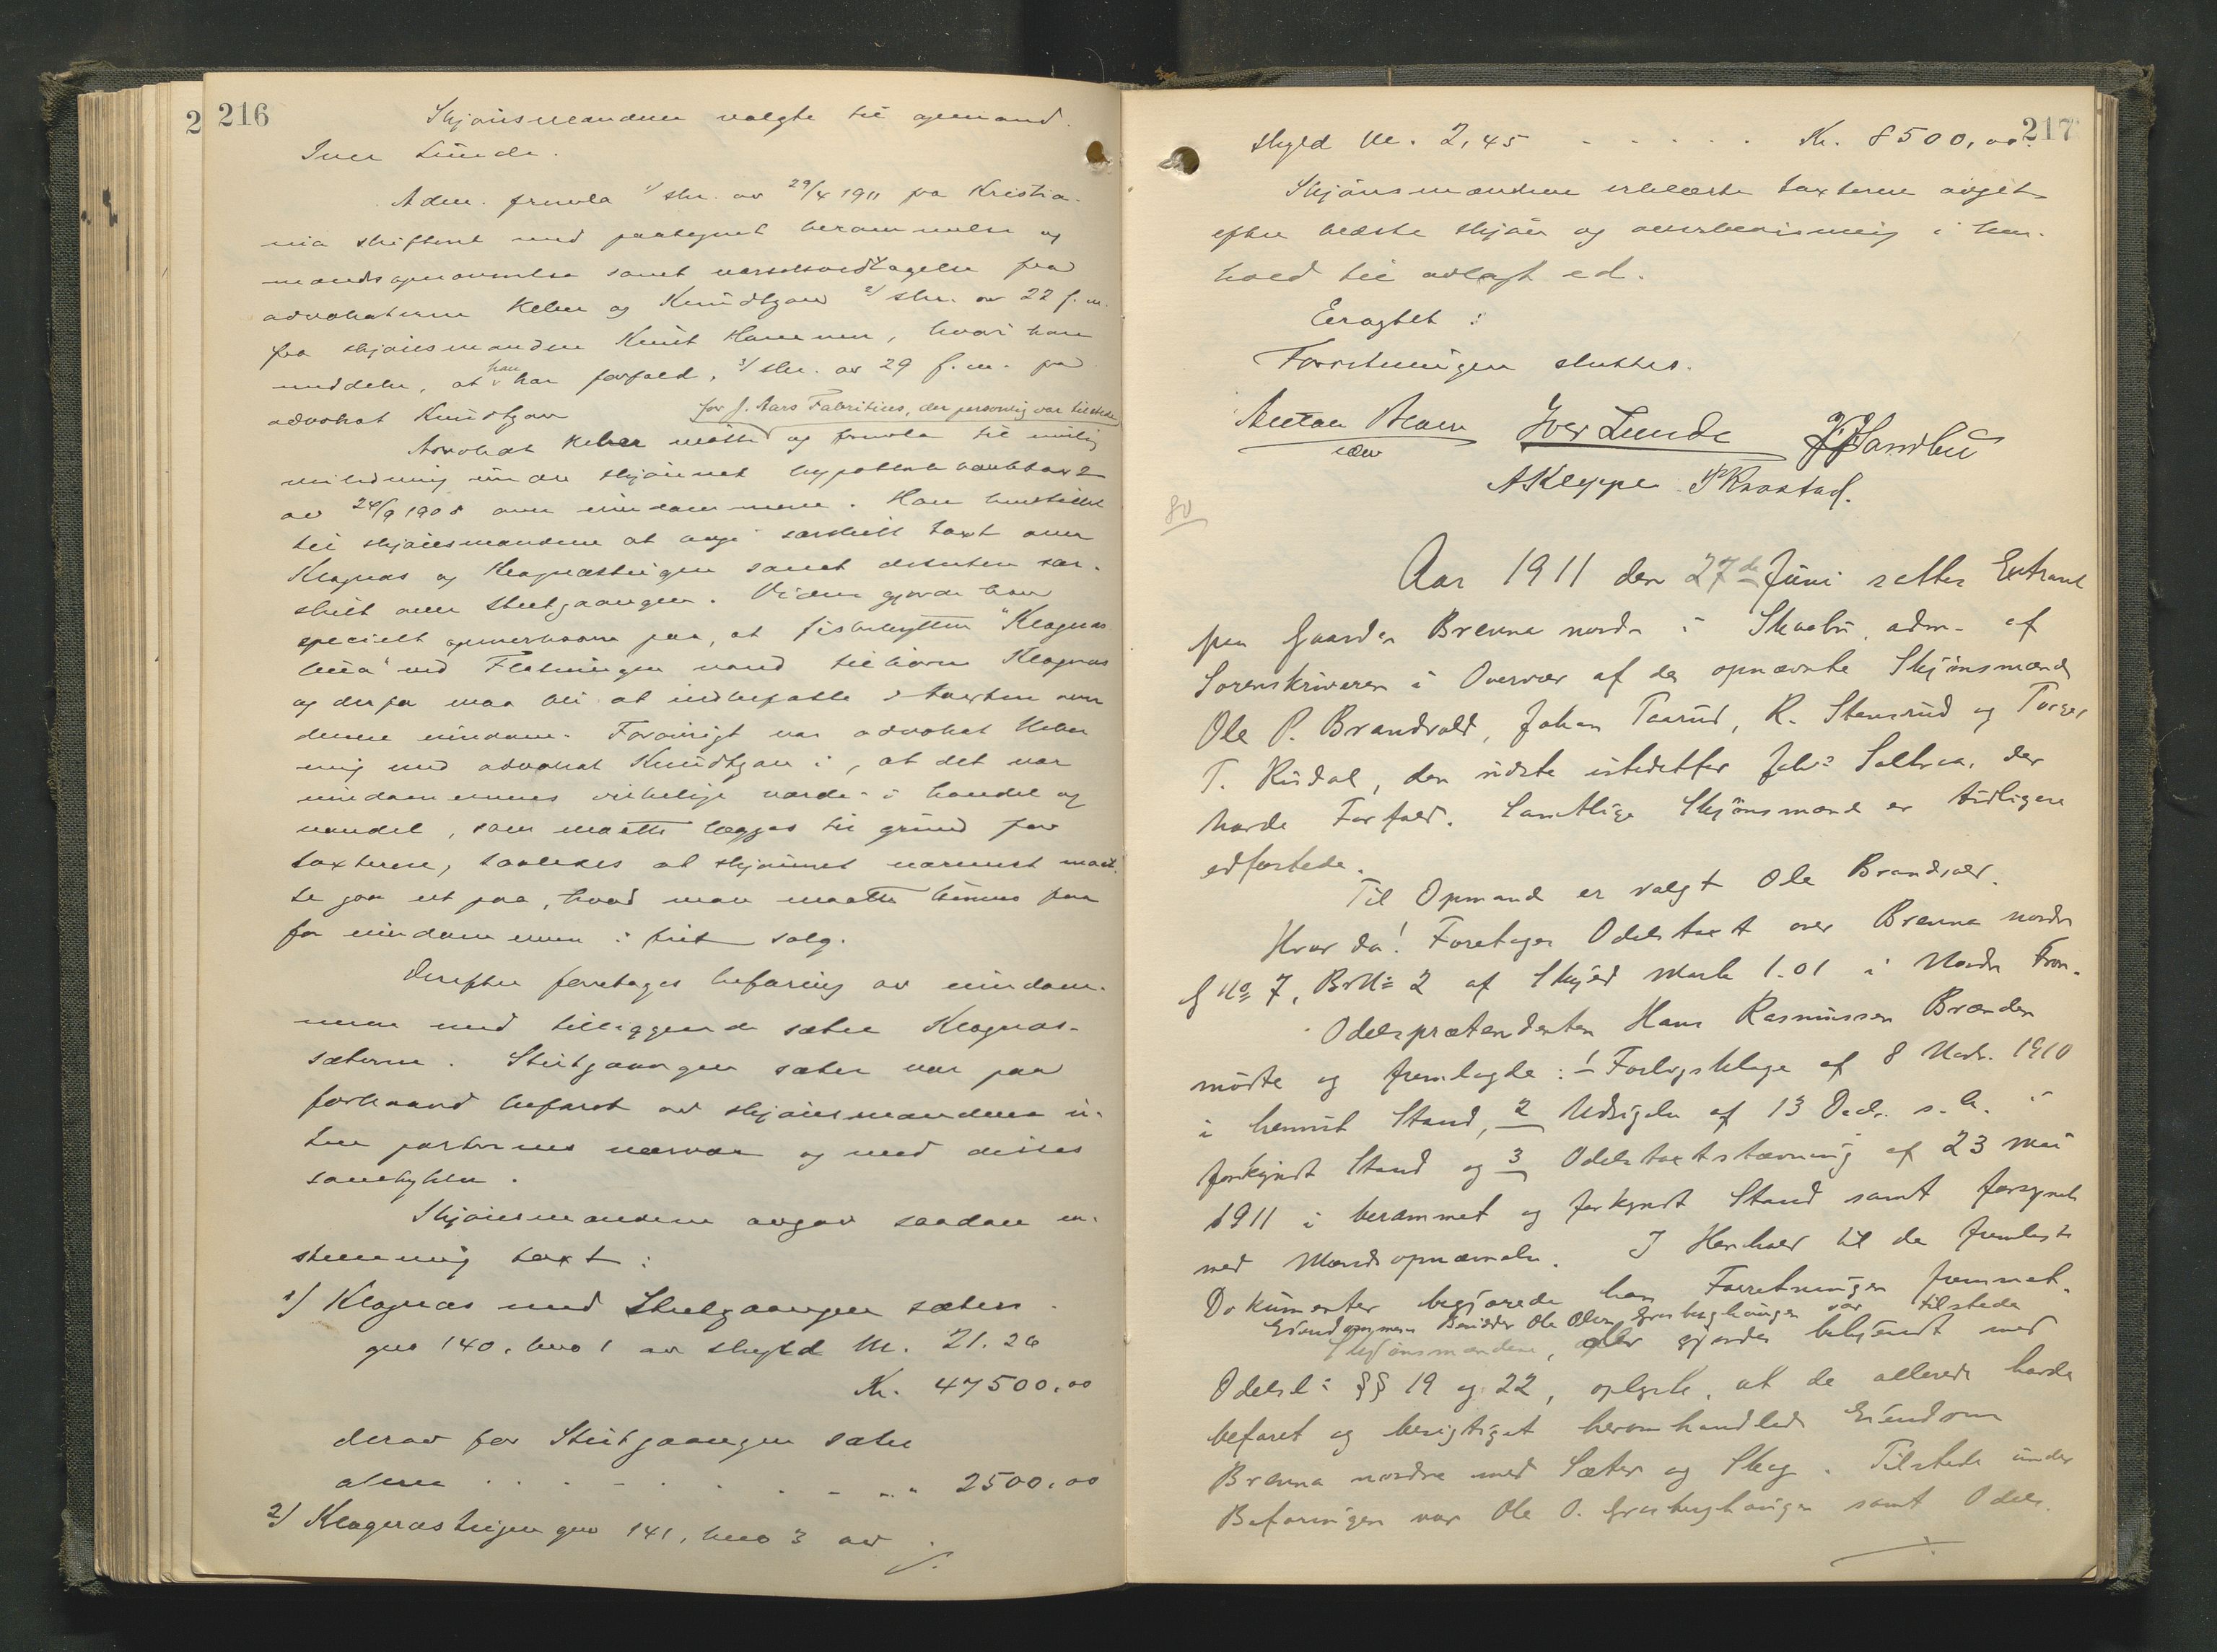 216
2
Skjønsmændene valgte til opmand
Iver Lunde.
Adm. fremla 1/ skr. av 29/4 1911 fra Kristia-
nia skifteret med paategnet berammelse og
mandsopnævnelse samt varselsvedtagelse fra
advokaterne Keber og Knudtzon 2/ skr. av 22 f. m.
fra skjønsmanden Knut Hammer, hvori han
meddeler, at han har forfald, 3/ skr. av 29 f. m. fra
advokat Knudtzon
for J. Aars Fabritius, der personlig var tilstede
Advokat Keber møtte og fremla til mulig
veiledning under skjønnet hypotekbanktaxt
av 24/9 1908 over eiendommene. Han henstillet
til skjønsmændene at avgi særskilt taxt over
Klognæs og Klognæsteigen samt desuten sær-
skilt over Stutgaangen. Videre gjorde han
specielt opmerksom paa, at fiskehytten "Klognæs
bua" ved Flatningen vand tilhører Klognæs
og derfor maa bli at indbefatte i taxten over
denne eiendom. Forøvrigt var advokat Keber
enig med advokat Knudtzon i, at det var
eiendommenes virkelige værdi i handel og
vandel, som maatte lægges til grund for
taxterne, saaledes at skjønnet nærmest maat-
te gaa ut paa, hvad man maatte kunne faa
for eiendommen i frit salg.
Derefter foretoges befaring av eiendom-
mene med tilliggende sæter Klognæs-
sæteren. Stutgaangen sæter var paa
forhaand befaret av skjønsmændene u-
ten parternes nærvær og med disses
samtykke.
Skjønsmændene avgav saadan en-
stemmig taxt:
1/ Klognæs med Stutgaangen sæter
gno 140, bno 1 av skyld M. 21.26
Kr. 47500.00
derav for Stutgaangen sæter
alene . . . . . . . . . " 2500.00
2/ Klognæsteigen gno 141, bno 3 av
./.
217
skyld M. 2,45 - - - - - Kr. 8500,00.
Skjønsmændene erklærte taxterne avgit
efter bedste skjøn og overbevisning i hen-
hold til avlagt ed.
Eragtet:
Forretningen sluttes.
Iver Lunde
A Kleppe
80
Aar 1911 den 27de Juni sattes Extraret
paa Gaarden Brenna nordre i Skaabu, adm. af
Sorenskriveren i Overvær af de opnævnte Skjønsmænd
Ole P. Brandvold, Johan Taarud, R. Stensrud og Torger
T. Risdal, den sidste istedetfor Johs Solbraa, der
havde Forfald. Samtlige Skjønsmænd er tidligere
edfæstede.
Til Opmand er valgt Ole Brandvold.
Hvor da! Foretoges Odelstaxt over Brenna nordre
G No 7, Br No 2 af Skyld Mark 1.01 i Nordre Fron.
Odelsprætendenten Hans Rasmussen Brænden
mødte og fremlagde: 1 Forligsklage af 8 Novbr. 1910
i henvist Stand, 2 Udsigelse af 13 Decbr. s. A. i
forkyndt Stand og 3 Odelstaxtstævning af 23 Mai
1911 i berammet og forkyndt Stand samt forsynet
med Mandsopnævnelse. I Henhold til de fremlagte
Dokumenter begjærede han Forretningen fremmet.
Eiendommens Besidder Ole Olsen Grasberghaugen var tilstede
Skjønsmændene, der gjordes bekjendt med
Odelsl: §§ 19 og 22, oplyste, at de allerede havde
befaret og besigtiget heromhandlede Eiendom
Brenna nordre med Sæter og Skog. Tilstede under
Befaringen var Ole O. Grasberghaugen samt Odels-
./.